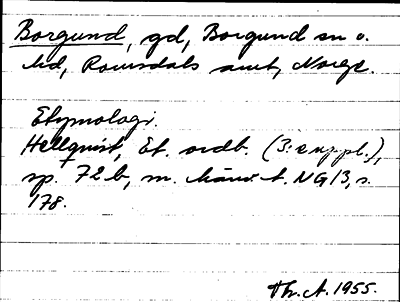 Borgund, gd, Borgund sn o.
hd, Romsdals amt, Norge.
Etymologi.
Hellquist, Et. ordb. (3:e uppl.),
sp. 72 b, m. hänv. t. NG 13, s.
178.
Th. A. 1955.